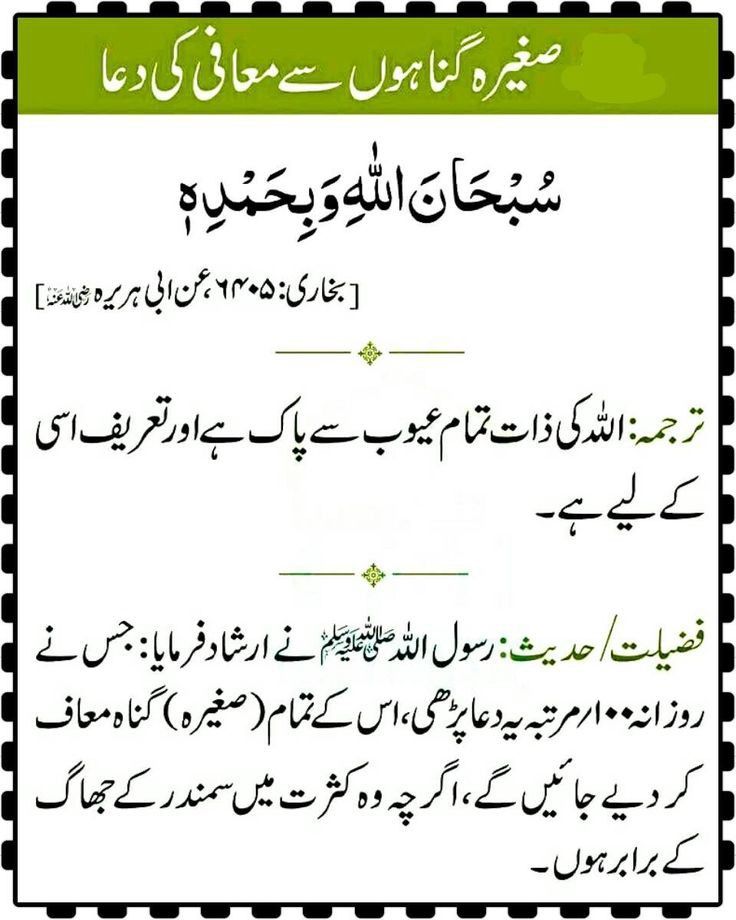 صغیرہ گناہوں سے معافی کی دعا
سُبْحَانَ اللهِ وَبِحَمْدِهٖ
[بخاری: ۶۴۰۵، عن ابی ہریرہ رضی اللہ عنہ]
ترجمہ: اللہ کی ذات تمام عیوب سے پاک ہے اور تعریف اسی
کے لیے ہے۔
فضیلت/حدیث: رسول اللہ ﷺ نے ارشاد فرمایا: جس نے
روزانہ ۱۰۰/مرتبہ یہ دعا پڑھی، اس کے تمام (صغیرہ) گناہ معاف
کر دیے جائیں گے، اگرچہ وہ کثرت میں سمندر کے جھاگ
کے برابر ہوں۔